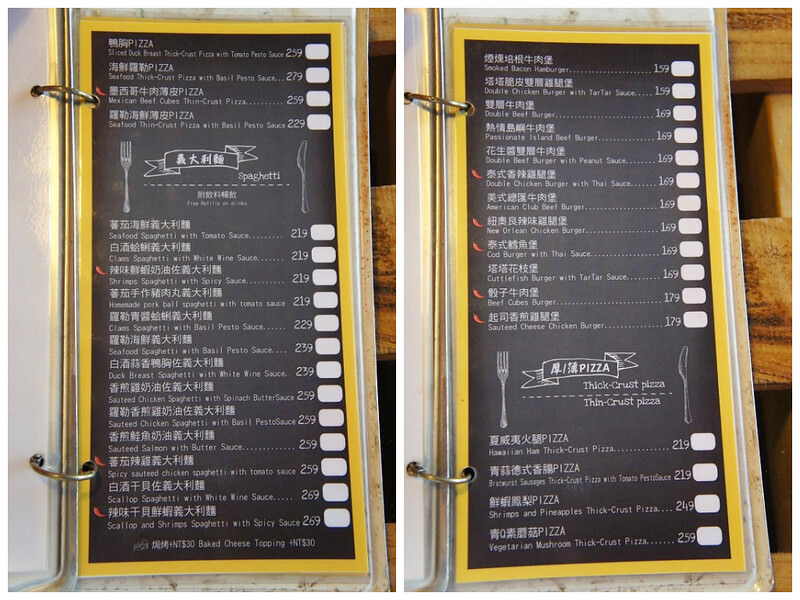 鴨胸PIZZA
Sliced Duck Breast Thick-Crust Pizza with Tomato Pesto Sauce 259
海鮮羅勒PIZZA
Seafood Thick-Crust Pizza with Basil Pesto Sauce... 279
墨西哥牛肉薄皮PIZZA
Mexican Beef Cubes Thin-Crust Pizza.......... 259
羅勒海鮮薄皮PIZZA
Seafood Thin-Crust Pizza with Basil Pesto Sauce 229
義大利麵
Spaghetti
附飲料暢飲
Free Refills on drinks
蕃茄海鮮義大利麵
Seafood Spaghetti with Tomato Sauce........ 219
白酒蛤蜊義大利麵
Clams Spaghetti with White Wine Sauce...... 219
辣味鮮蝦奶油佐義大利麵
Shrimps Spaghetti with Spicy Sauce......... 219
蕃茄手作豬肉丸義大利麵
Homemade pork ball spaghetti with tomato sauce 219
羅勒青醬蛤蜊義大利麵
Clams Spaghetti with Basil Pesto Sauce...... 229
羅勒海鮮義大利麵
Seafood Spaghetti with Basil Pesto Sauce.... 239
白酒蒜香鴨胸佐義大利麵
Duck Breast Spaghetti with White Wine Sauce. 239
香煎雞奶油佐義大利麵
Sauteed Chicken Spaghetti with Spinach ButterSauce 259
羅勒香煎雞奶油佐義大利麵
Sauteed Chicken Spaghetti with Basil PestoSauce 259
香煎鮭魚奶油義大利麵
Sauteed Salmon with Butter Sauce........... 259
蕃茄辣雞義大利麵
Spicy sauteed chicken spaghetti with tomato sauce 259
白酒干貝佐義大利麵
Scallop Spaghetti with White Wine Sauce..... 269
辣味干貝鮮蝦義大利麵
Scallop and Shrimps Spaghetti with Spicy Sauce 269
焗烤+NT$30 Baked Cheese Topping +NT$30
煙燻培根牛肉堡
Smoked Bacon Hamburger.................. 159
塔塔脆皮雙層雞腿堡
Double Chicken Burger with TarTar Sauce..... 159
雙層牛肉堡
Double Beef Burger...................... 169
熱情島嶼牛肉堡
Passionate Island Beef Burger............. 169
花生醬雙層牛肉堡
Double Beef Burger with Peanut Sauce....... 169
泰式香辣雞腿堡
Double Chicken Burger with Thai Sauce...... 169
美式總匯牛肉堡
American Club Beef Burger................ 169
紐奧良辣味雞腿堡
New Orlean Chicken Burger................ 169
泰式鱈魚堡
Cod Burger with Thai Sauce............... 169
塔塔花枝堡
Cuttlefish Burger with TarTar Sauce....... 169
骰子牛肉堡
Beef Cubes Burger....................... 179
起司香煎雞腿堡
Sauteed Cheese Chicken Burger............ 179
厚/薄PIZZA
Thick-Crust pizza
Thin-Crust pizza
夏威夷火腿PIZZA
Hawaiian Ham Thick-Crust Pizza........... 219
青蒜德式香腸PIZZA
Bratwurst Sausages Thick-Crust Pizza with Tomato PestoSauce 219
鮮蝦鳳梨PIZZA
Shrimps and Pineapples Thick-Crust Pizza.... 249
青Q素蘑菇PIZZA
Vegetarian Mushroom Thick-Crust Pizza...... 259